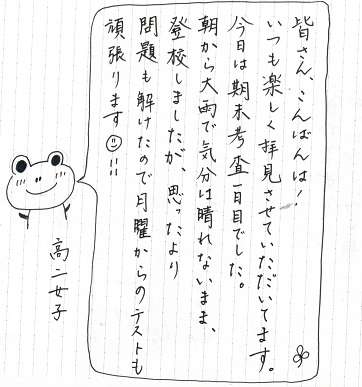 皆さん、こんばんは！
いつも楽しく拝見させていただいてます。
今日は期末考査一日目でした。
朝から大雨で気分は晴れないまま、
登校しましたが、思ったより
問題も解けたので月曜からのテストも
頑張ります
高二女子